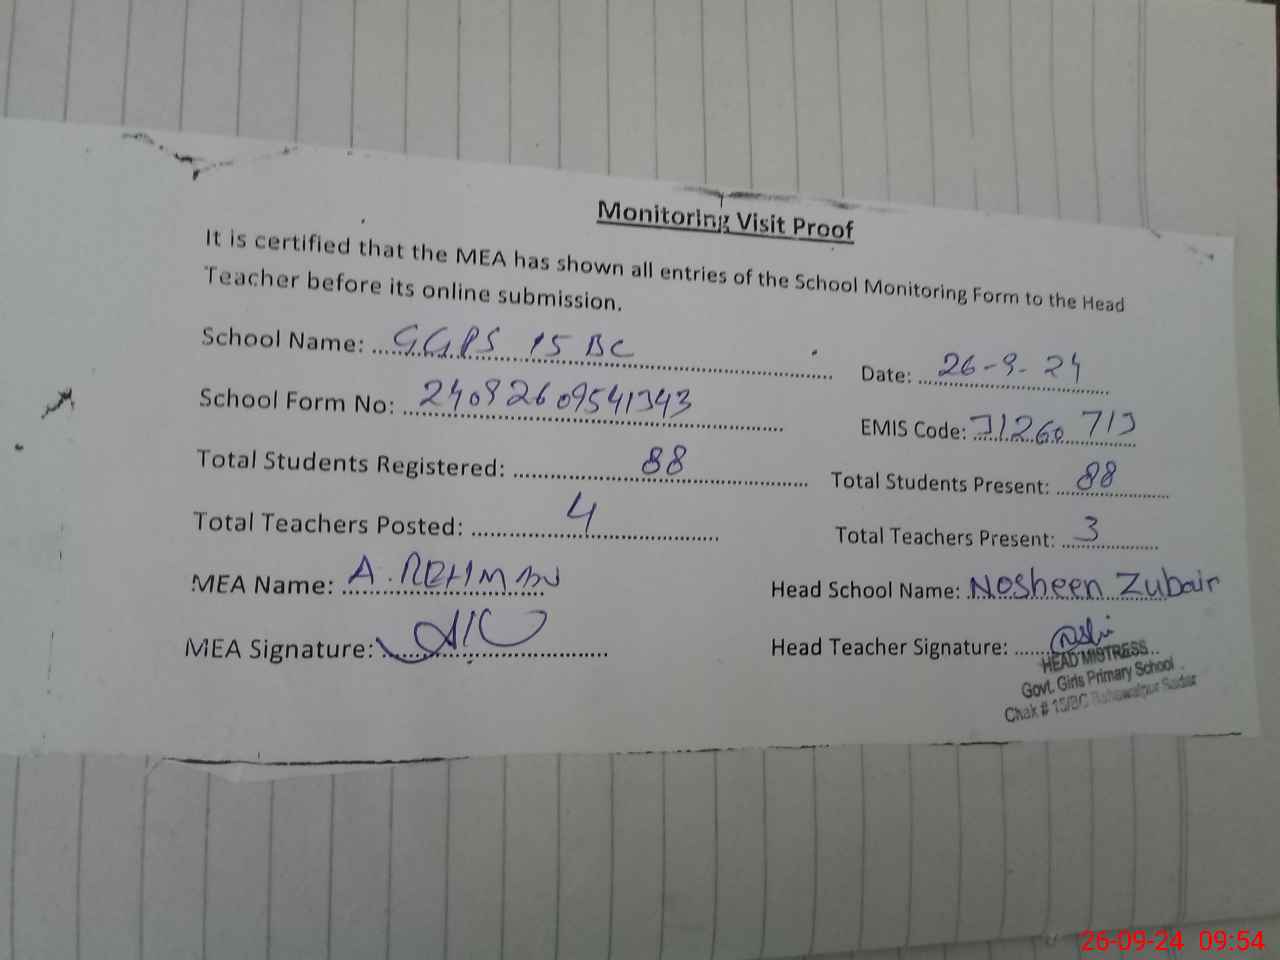 Monitoring Visit Proof
It is certified that the MEA has shown all entries of the School Monitoring Form to the Head
Teacher before its online submission.
School Name: GGPS 15 BC
Date: 26-9-24
School Form No: 24092609541343
EMIS Code: 31260713
Total Students Registered: 88
Total Students Present: 88
Total Teachers Posted: 4
Total Teachers Present: 3
MEA Name: A. REHMAN
Head School Name: Nosheen Zubair
MEA Signature:
Head Teacher Signature:
HEAD MISTRESS
Govt. Girls Primary School
Chak # 15/BC Bahawalpur Sadar
26-09-24 09:54